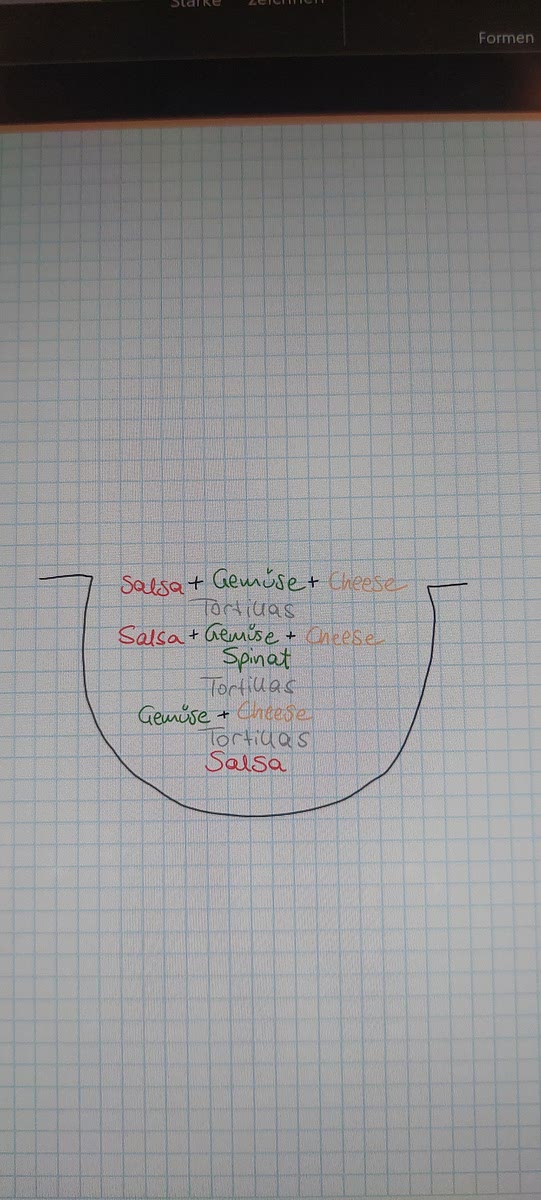 Stärke Zeichnen
Formen
Salsa + Gemüse + Cheese
Tortillas
Salsa + Gemüse + Cheese
Spinat
Tortillas
Gemüse + Cheese
Tortillas
Salsa